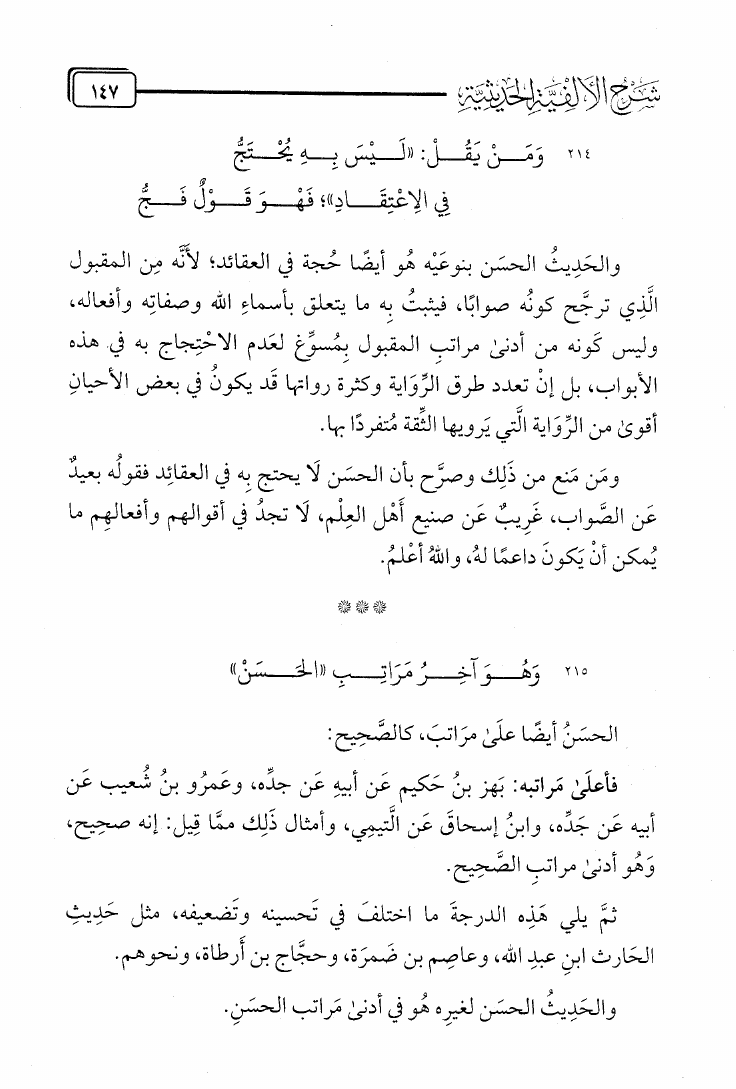 شَرْحُ الأَلْفِيَّةِ الحَدِيثِيَّةِ
١٤٧
٢١٤ وَمَنْ يَقُلْ: «لَيْسَ بِهِ يُحْتَجُّ
فِي الِاعْتِقَادِ»؛ فَهْوَ قَوْلٌ فَجُّ
والحَدِيثُ الحسَن بنوعَيْه هُو أيضًا حُجة في العقائد؛ لأنَّه مِن المقبول
الَّذِي ترجَّح كونُه صوابًا، فيثبتُ بِه ما يتعلق بأسماءِ الله وصفاتِه وأفعاله،
وليس كَونه من أدنىٰ مراتبِ المقبول بِمُسوِّغ لعَدم الاحْتِجاج به في هذه
الأبواب، بل إنْ تعدد طرق الرِّوَاية وكثرة رواتها قَد يكونُ في بعض الأحيانِ
أقوىٰ من الرِّوَاية الَّتي يَرويها الثِّقة مُتفردًا بها.
ومَن مَنع من ذَلِك وصرَّح بأن الحسَن لَا يحتج بِه في العقائِد فقولُه بعيدٌ
عَن الصَّواب، غَرِيبٌ عَن صنيع أَهْل العِلْم، لَا تجدُ في أقوالهم وأفعالهِم ما
يُمكن أنْ يَكونَ داعمًا لهُ، واللهُ أعْلمُ.
***
٢١٥ وَهُوَ آخِرُ مَرَاتِبِ «الحَسَنْ»
الحسَنُ أيضًا علَىٰ مرَاتبَ، كالصَّحِيح:
فأعلَىٰ مَراتبه: بَهز بنُ حَكيم عَن أبيهِ عَن جدِّه، وعَمرُو بنُ شُعيب عَن
أبيه عَن جَدِّه، وابنُ إسحاقَ عَن الَّتيمِي، وأمثال ذَلِك ممَّا قِيل: إنه صحيح،
وَهُو أدنىٰ مراتبِ الصَّحِيح.
ثمَّ يلي هَذِه الدرجةَ ما اختلفَ في تَحسينه وتَضعيفه، مثل حَدِيثِ
الحَارث ابنِ عبدِ الله، وعاصِم بن ضَمرَة، وحجَّاج بن أَرطاة، ونحوهم.
والحَدِيثُ الحسَن لغيرِه هُو في أدنىٰ مَراتب الحسَنِ.